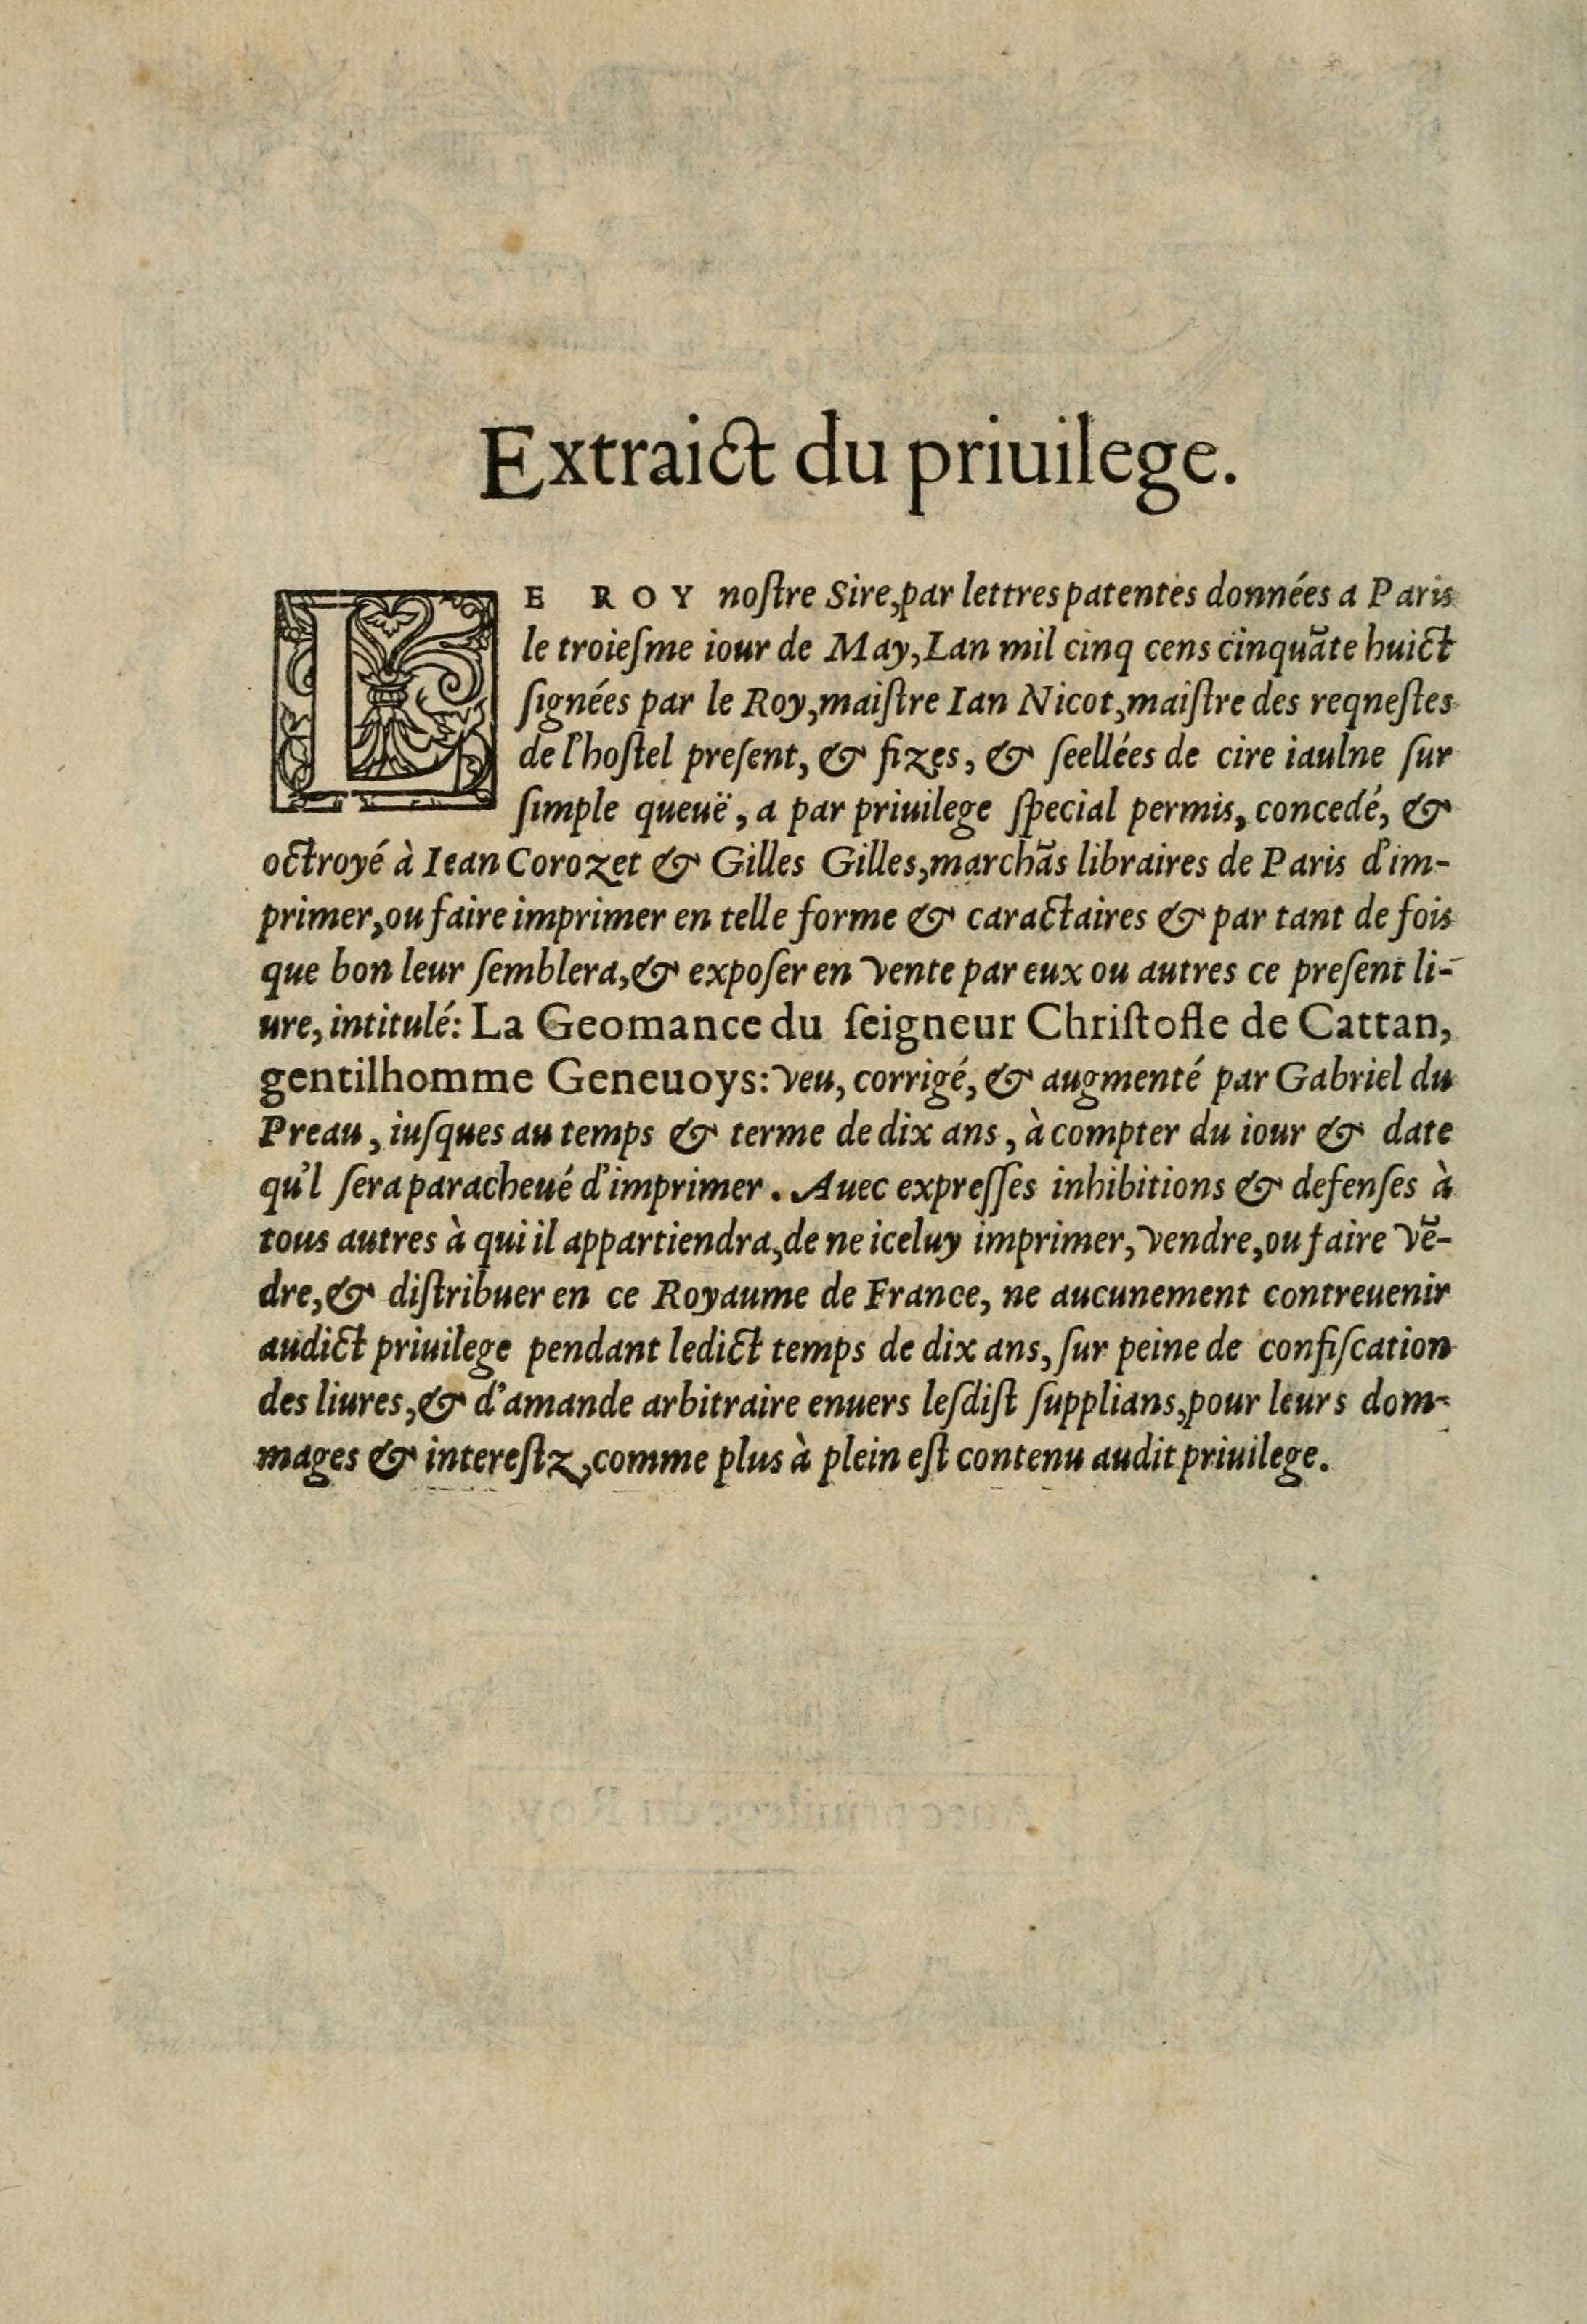 Extraict du priuilege.
LE ROY noſtre Sire, par lettres patentes données a Paris
le troieſme iour de May, Lan mil cinq cens cinquãte huict
ſignées par le Roy, maiſtre Ian Nicot, maiſtre des reqneſtes
de l'hoſtel preſent, & fizes, & ſeellées de cire iaulne ſur
ſimple queuë, a par priuilege ſpecial permis, concedé, &
octroyé à Iean Corozet & Gilles Gilles, marchãs libraires de Paris d'im-
primer, ou faire imprimer en telle forme & caractaires & par tant de fois
que bon leur ſemblera, & expoſer en vente par eux ou autres ce preſent li-
ure, intitulé: La Geomance du ſeigneur Chriſtofle de Cattan,
gentilhomme Geneuoys: veu, corrigé, & augmenté par Gabriel du
Preau, iuſques au temps & terme de dix ans, à compter du iour & date
qu'l ſera paracheué d'imprimer. Auec expreſſes inhibitions & defenſes à
tous autres à qui il appartiendra, de ne iceluy imprimer, vendre, ou faire vẽ-
dre, & diſtribuer en ce Royaume de France, ne aucunement contreuenir
audict priuilege pendant ledict temps de dix ans, ſur peine de confiſcation
des liures, & d'amande arbitraire enuers leſdiſt ſupplians, pour leurs dom-
mages & intereſtz, comme plus à plein eſt contenu audit priuilege.
Auec priuilege du Roy.